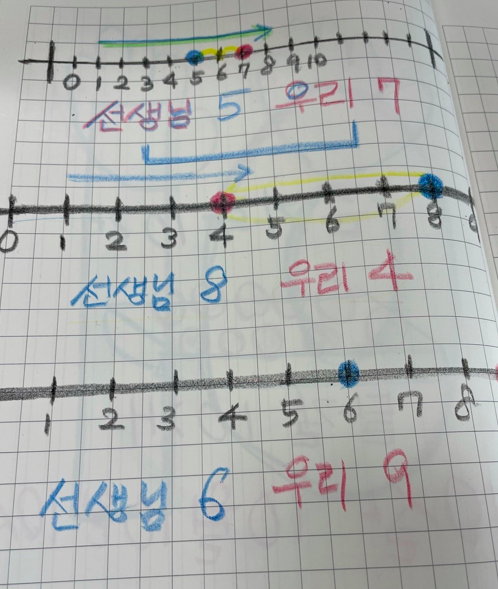 0 1 2 3 4 5 6 7 8 9 10
선생님 5 우리 7
0 1 2 3 4 5 6 7 8
선생님 8 우리 4
1 2 3 4 5 6 7 8
선생님 6 우리 9